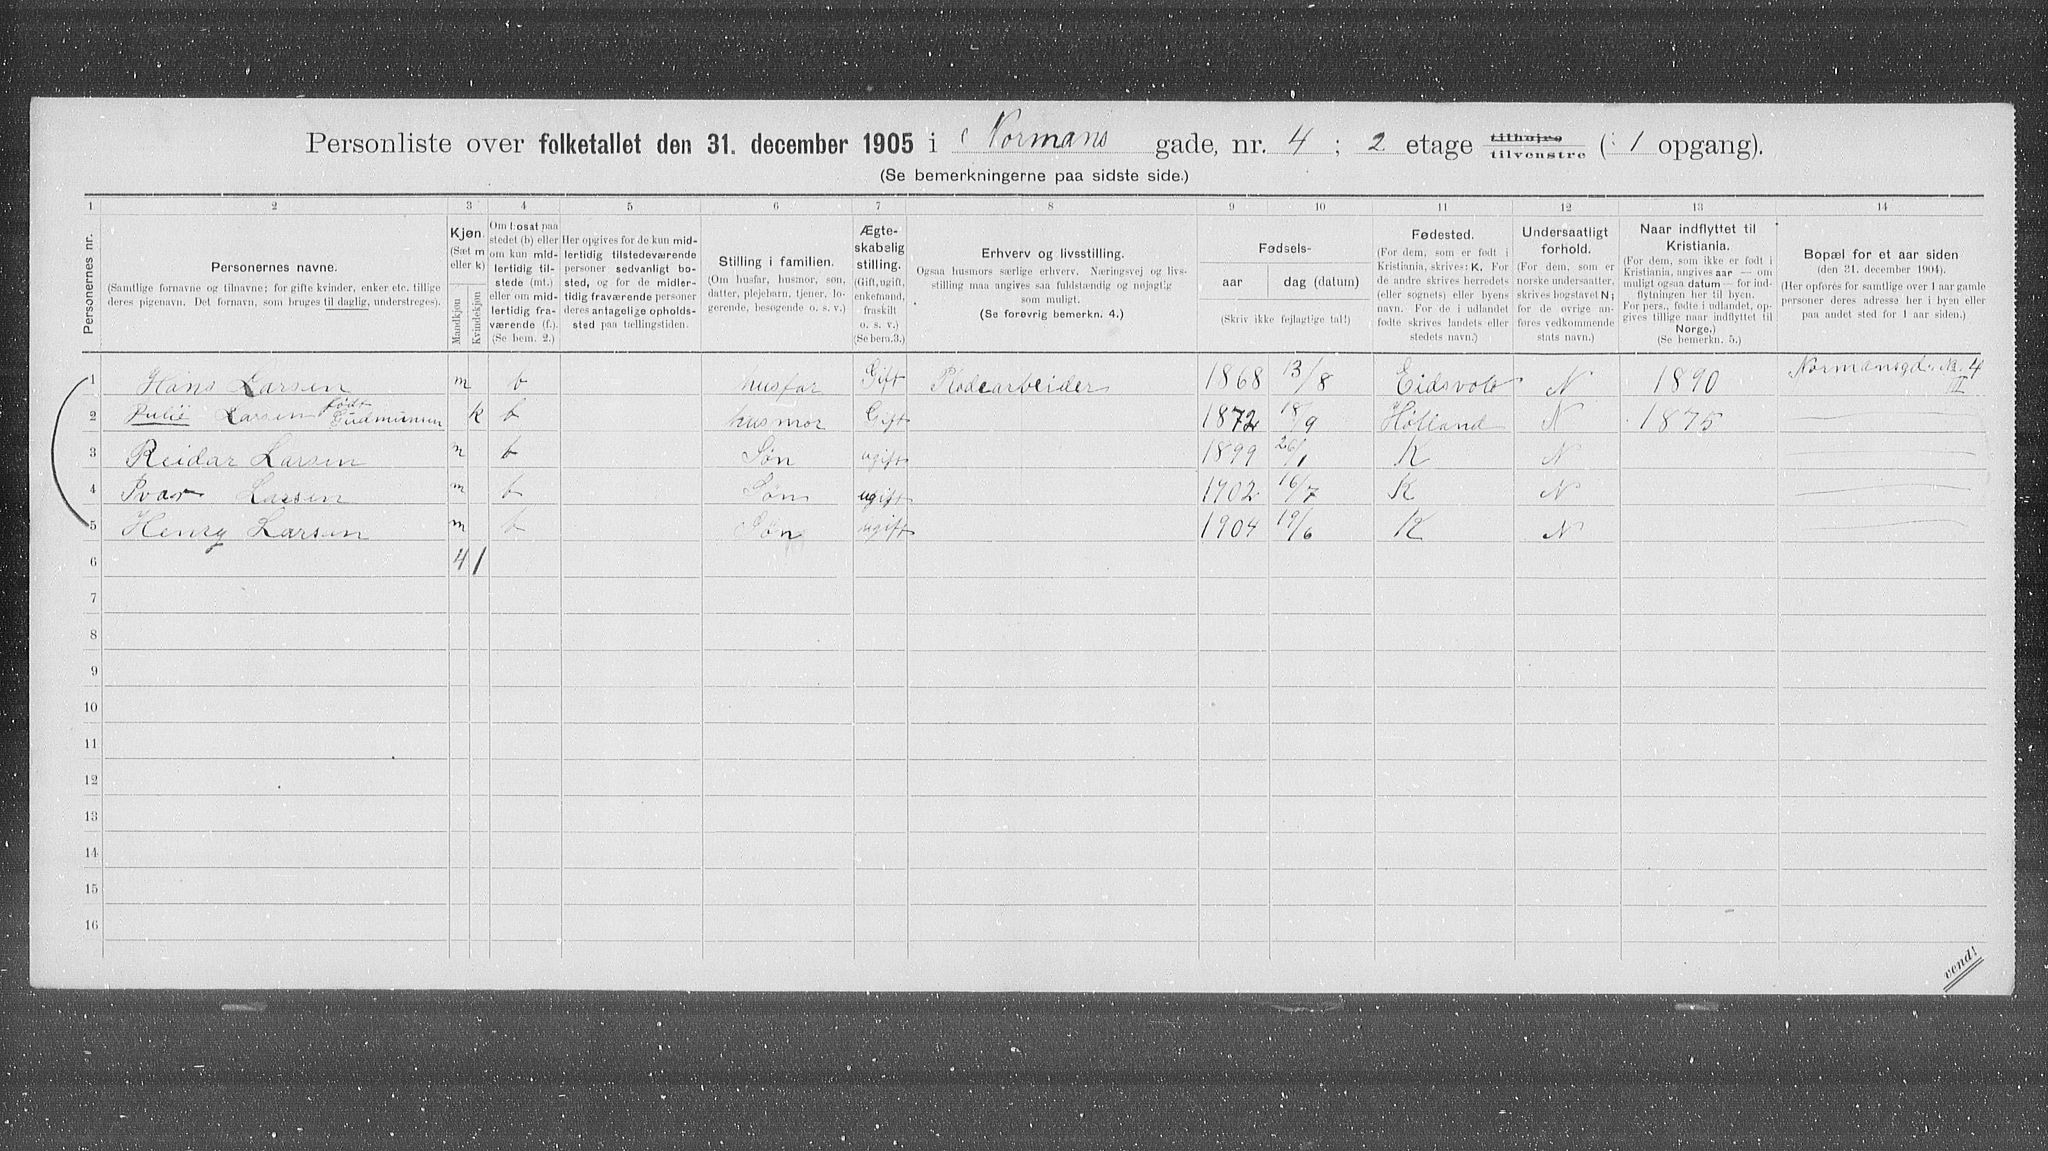 Personliste over folketallet den 31. december 1905 i Normans gade, nr. 4 ; 2 etage tilhøjre tilvenstre ( : 1 opgang).
(Se bemerkningerne paa sidste side.)
1 2 3 4 5 6 7 8 9 10 11 12 13 14
Personernes nr.
Personernes navne.
(Samtlige fornavne og tilnavne; for gifte kvinder, enker etc. tillige deres pigenavn. Det fornavn, som bruges til daglig, understreges).
Kjøn.
(Sæt m eller k)
Mandkjøn
Kvindekjøn
Om bosat paa stedet (b) eller om kun midlertidig tilstede (mt.) eller om midlertidig fraværende (f.). (Se bem. 2.)
Her opgives for de kun midlertidig tilstedeværende personer sedvanligt bosted, og for de midlertidig fraværende personer deres antagelige opholdssted paa tællingstiden.
Stilling i familien.
(Om husfar, husmor, søn, datter, plejebarn, tjener, logerende, besøgende o. s. v.)
Ægteskabelig stilling.
(Gift, ugift, enkemand, fraskilt o. s. v.) (Se bem.3.)
Erhverv og livsstilling.
Ogsaa husmors særlige erhverv. Næringsvej og livsstilling maa angives saa fuldstændig og nøjagtig som muligt.
(Se forøvrig bemerkn. 4.)
Fødsels-
aar
dag (datum)
(Skriv ikke fejlagtige tal!)
Fødested.
(For dem, som er født i Kristiania, skrives: K. For de andre skrives herredets (eller sognets) eller byens navn. For de i udlandet fødte skrives landets eller stedets navn.)
Undersaatligt forhold.
(For dem, som er norske undersaatter, skrives bogstavet N; for de øvrige anføres vedkommende stats navn.)
Naar indflyttet til Kristiania.
(For dem, som ikke er født i Kristiania, angives aar — om muligt ogsaa datum — for indflytningen her til byen. For pers., fødte i udlandet, opgives tillige naar indflyttet til Norge.)
(Se bemerkn. 5.)
Bopæl for et aar siden
(den 31. december 1904).
(Her opføres for samtlige over 1 aar gamle personer deres adresse her i byen eller paa andet sted for 1 aar siden.)
1 Hans Larsen m b husfar Gift 1868 13/8 Eidsvold N 1890 Normansgd. No. 4 III
2 Julie Larsen født Gudmunsen k b husmor Gift 1872 18/9 Høland N 1875
3 Reidar Larsen m b Søn ugift 1899 26/1 K N
4 Ivar Larsen m b Søn ugift 1902 16/7 K N
5 Henry Larsen m b Søn ugift 1904 19/6 K N
6 4 1
7
8
9
10
11
12
13
14
15
16
vend!